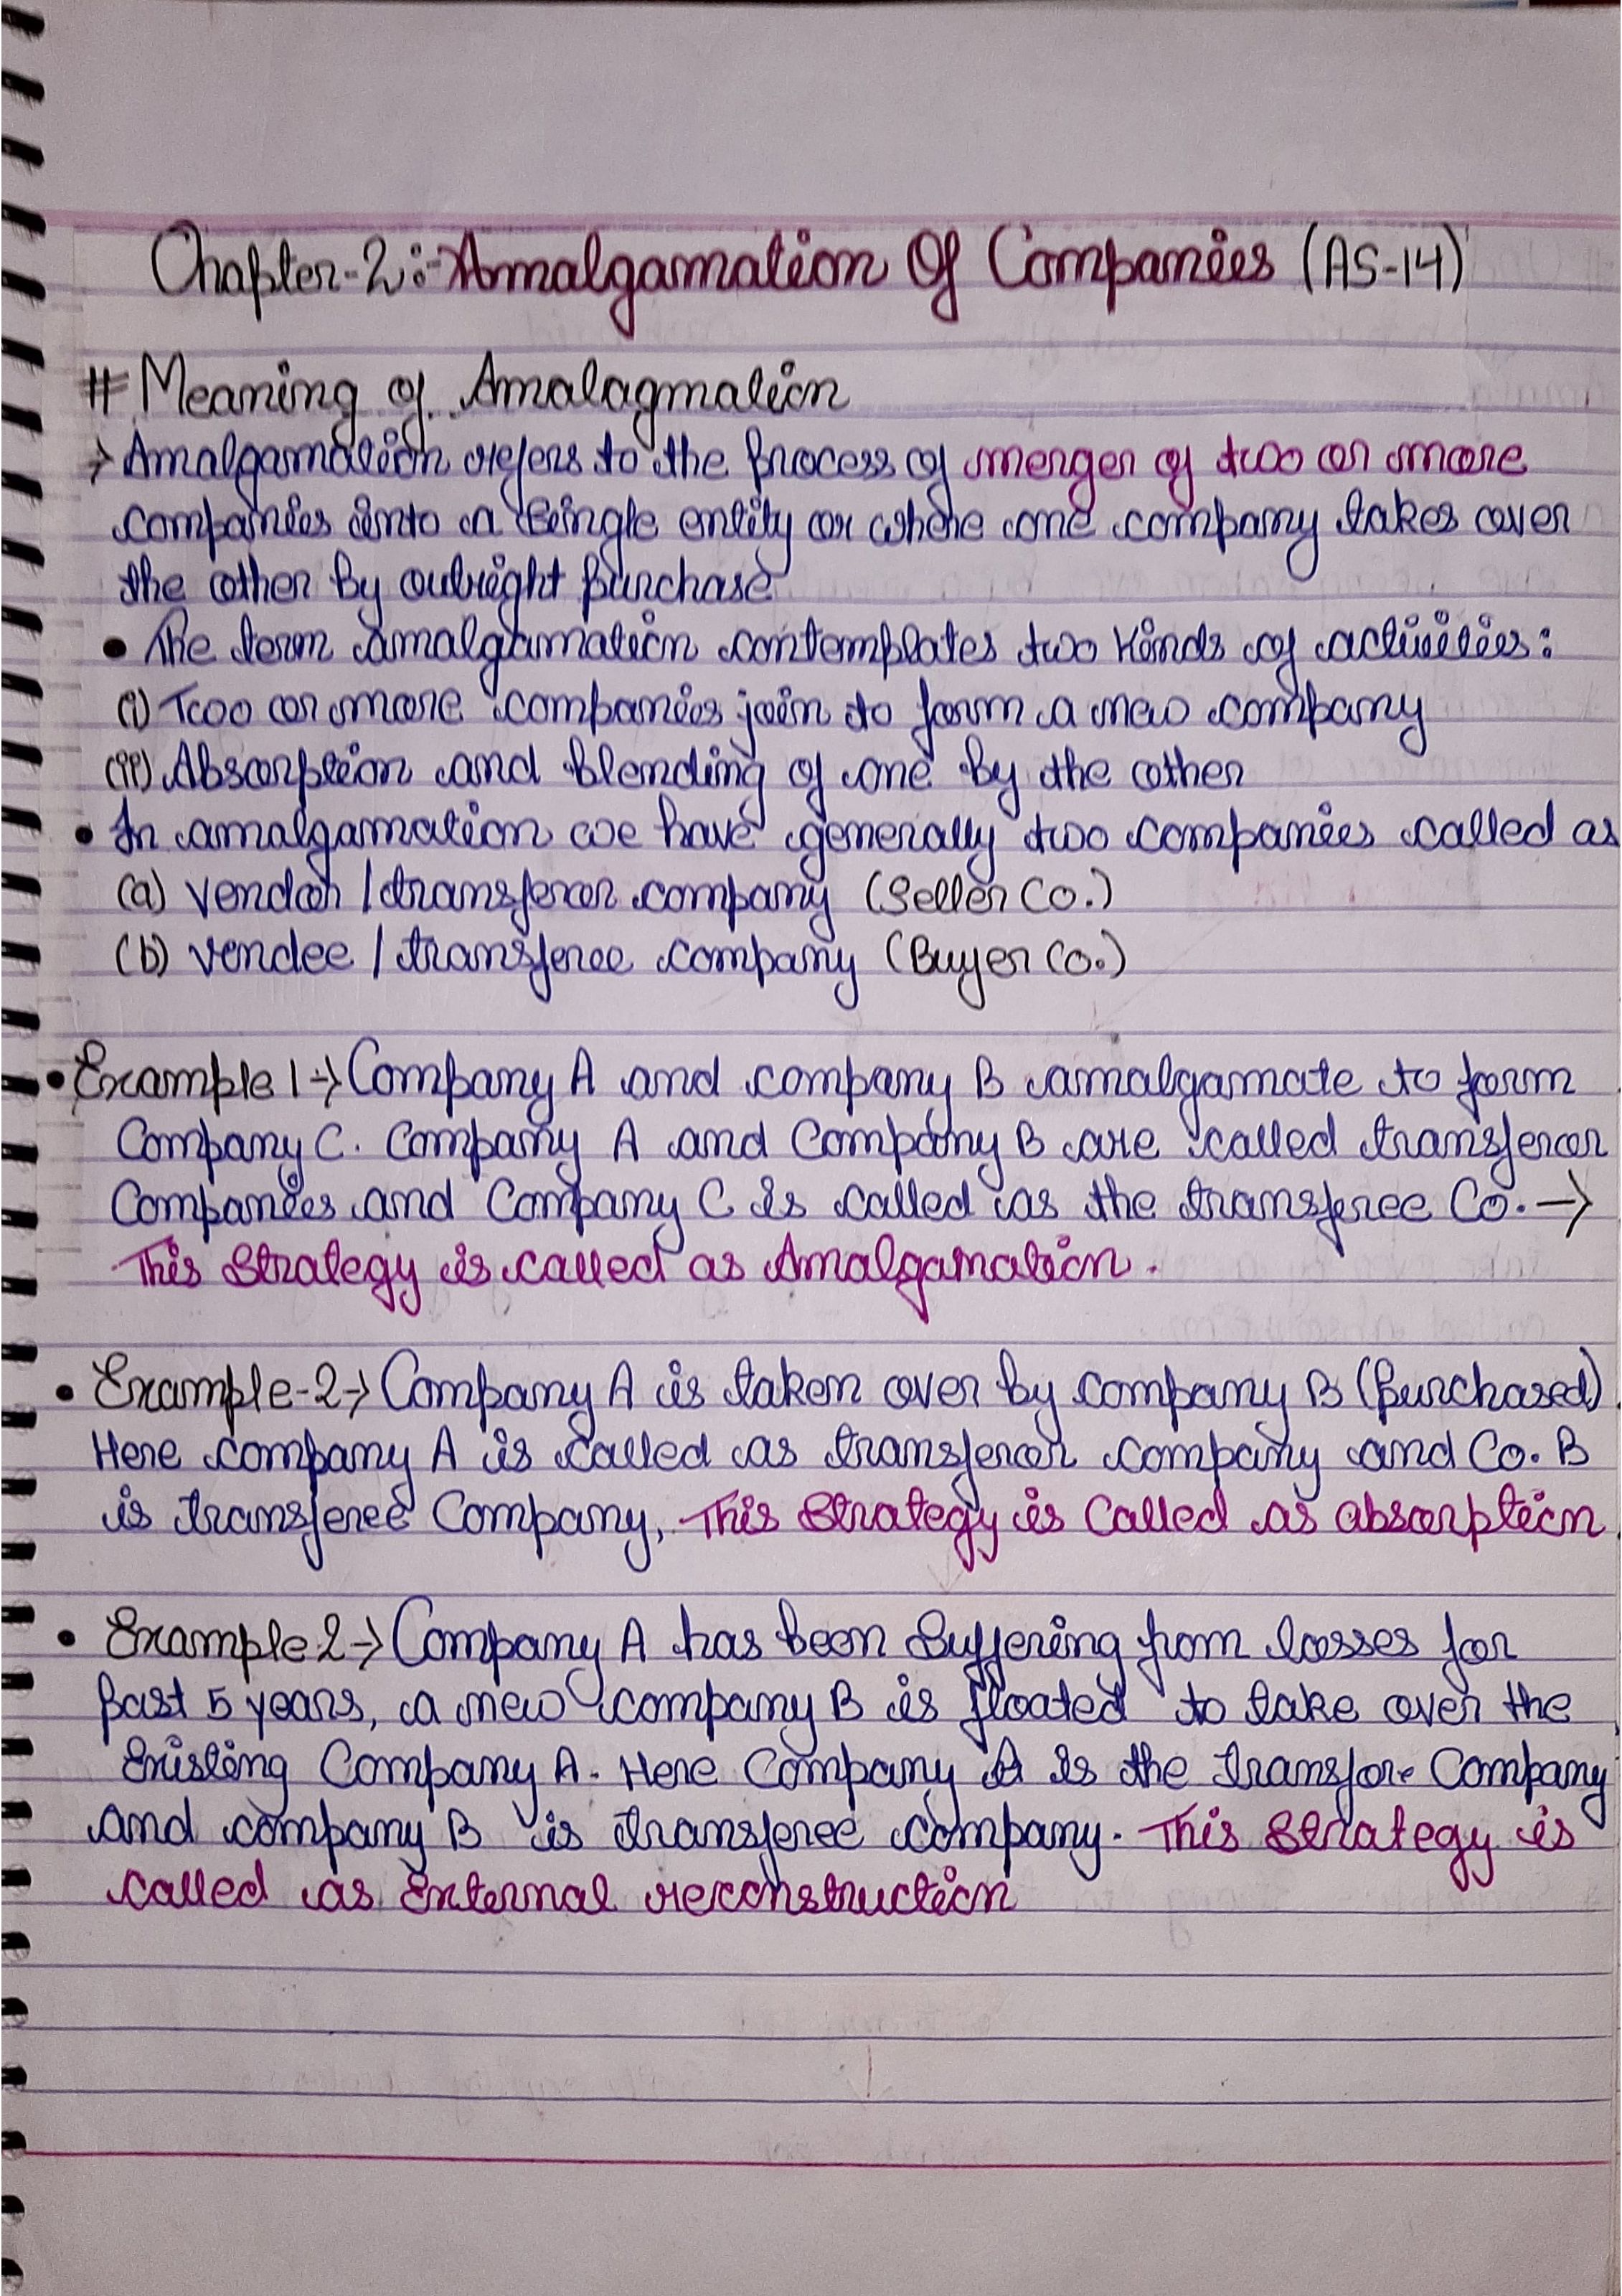 Chapter-2:- Amalgamation Of Companies (AS-14)
# Meaning of Amalagmation
→ Amalgamation refers to the process of merger of two or more
companies into a single entity or where one company takes over
the other by outright purchase
• The term amalgamation contemplates two kinds of activities:
(i) Two or more companies join to form a new company
(ii) Absorption and blending of one by the other
• In amalgamation we have generally two companies called as
(a) Vendor / transferor company (Seller Co.)
(b) Vendee / transferee company (Buyer Co.)
• Example 1 → Company A and company B amalgamate to form
Company C. Company A and Company B are called transferor
Companies and Company C is called as the transferee Co. →
This Strategy is called as Amalgamation.
• Example-2 → Company A is taken over by company B (purchased).
Here company A is called as transferor company and Co. B
is transferee Company, This Strategy is Called as absorption.
• Example 2 → Company A has been suffering from losses for
past 5 years, a new company B is floated to take over the
Existing Company A. Here Company A is the transfore Company
and company B is transferee company. This Strategy is
called as External reconstruction